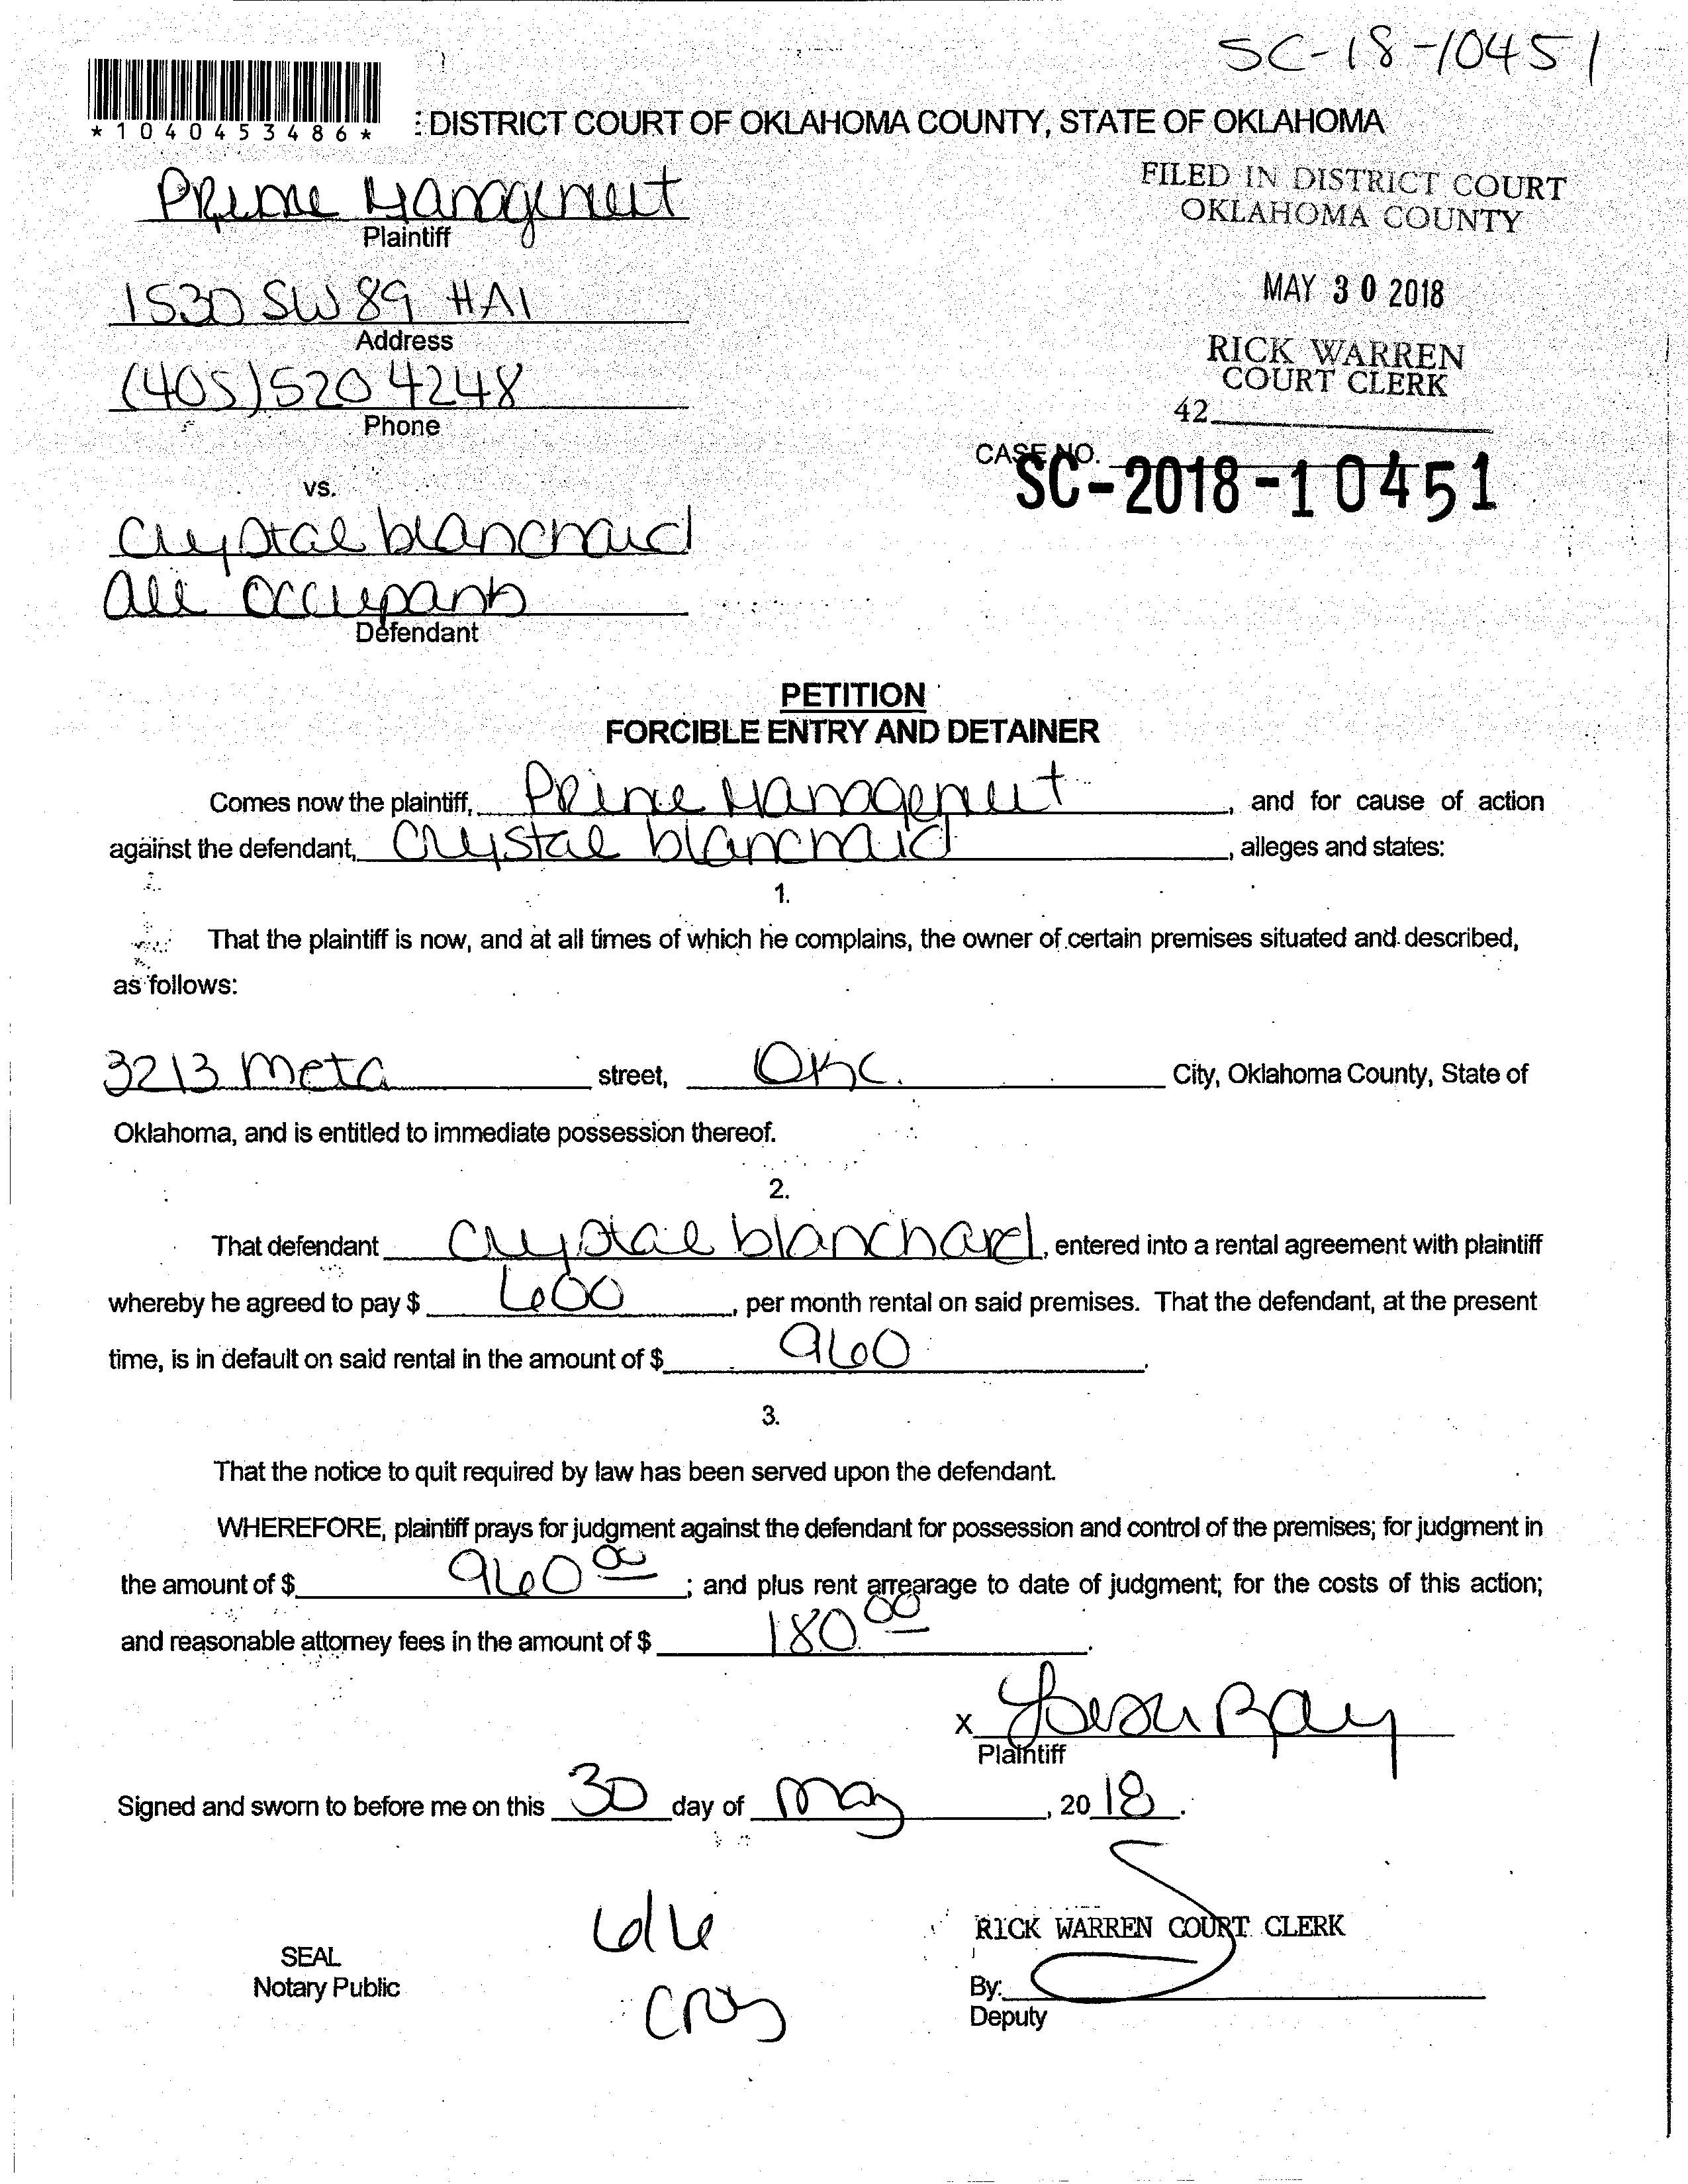 SC-18-10451
*1040453486*
: DISTRICT COURT OF OKLAHOMA COUNTY, STATE OF OKLAHOMA
Prime Management
Plaintiff
FILED IN DISTRICT COURT
OKLAHOMA COUNTY
1530 SW 89 #A1
Address
MAY 30 2018
(405) 520 4248
Phone
RICK WARREN
COURT CLERK
42
CASE NO. SC-2018-10451
vs.
Crystal blanchard
all occupants
Defendant
PETITION
FORCIBLE ENTRY AND DETAINER
Comes now the plaintiff, Prime Management, and for cause of action
against the defendant, Crystal blanchard, alleges and states:
1.
That the plaintiff is now, and at all times of which he complains, the owner of certain premises situated and described,
as follows:
3213 Meta street, OKC. City, Oklahoma County, State of
Oklahoma, and is entitled to immediate possession thereof.
2.
That defendant Crystal blanchard, entered into a rental agreement with plaintiff
whereby he agreed to pay $ 600, per month rental on said premises. That the defendant, at the present
time, is in default on said rental in the amount of $ 960.
3.
That the notice to quit required by law has been served upon the defendant.
WHEREFORE, plaintiff prays for judgment against the defendant for possession and control of the premises; for judgment in
the amount of $ 960 00; and plus rent arrearage to date of judgment; for the costs of this action;
and reasonable attorney fees in the amount of $ 180 00.
x
Plaintiff
Signed and sworn to before me on this 30 day of May, 2018.
RICK WARREN COURT CLERK
SEAL
Notary Public
By:
Deputy